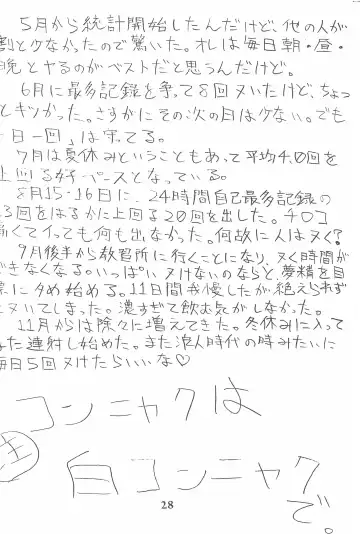 5月から統計開始したんだけど、他の人が
割と少なかったので驚いた。オレは毎日朝・昼・
晩とヤるのがベストだと思うんだけど。
6月に最多記録を争って8回ヌいたけど、ちょっ
とキツかった。さすがにその次の日は少ない。でも
一日一回」は守ってる。
7月は夏休みということもあって平均4.0回を
上回る好ペースとなっている。
8月15・16日に、24時間自己最多記録の
3回をはるかに上回る20回を出した。チロコ
痛くてイっても何も出なかった。何故に人はヌく?
9月後半から教習所に行くことになり、ヌく時間が
できなくなる。いっぱいヌけないのならと、夢精を目
標にタめ始める。11日間我慢したが、絶えられず
ヌいてしまった。濃すぎて飲む気がしなかった。
11月からは除々に増えてきた。冬休みに入って
また連射し始めた。また浪人時代の時みたいに
毎日5回ヌけたらいいな♡
コンニャクは
注
白コンニャク
で。
28